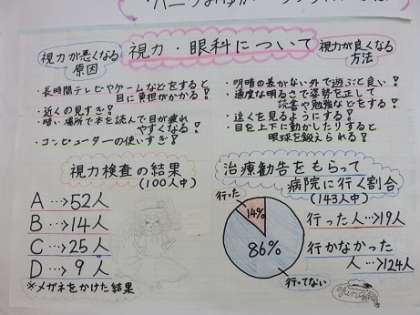 視力が悪くなる
原因
視力・眼科について
視力が良くなる
方法
・長時間テレビやゲームなどをすると
目に負担がかかる!
・近くの見すぎ!
・暗い場所で本を読んで目が疲れ
やすくなる!
・コンピューターの使いすぎ!
・明暗の差がない外で遊ぶと良い!
・適度な明るさで姿勢を正して
読書や勉強などをする!
・遠くを見るようにする!
・目を上下に動かしたりすると
眼球を鍛えられる!
視力検査の結果
(100人中)
A…→52人
B…→14人
C…→25人
D…→9人
※メガネをかけた結果
治療勧告をもらって
病院に行く割合
(143人中)
行った
14%
86%
行ってない
行った人…→19人
行かなかった
人…→124人